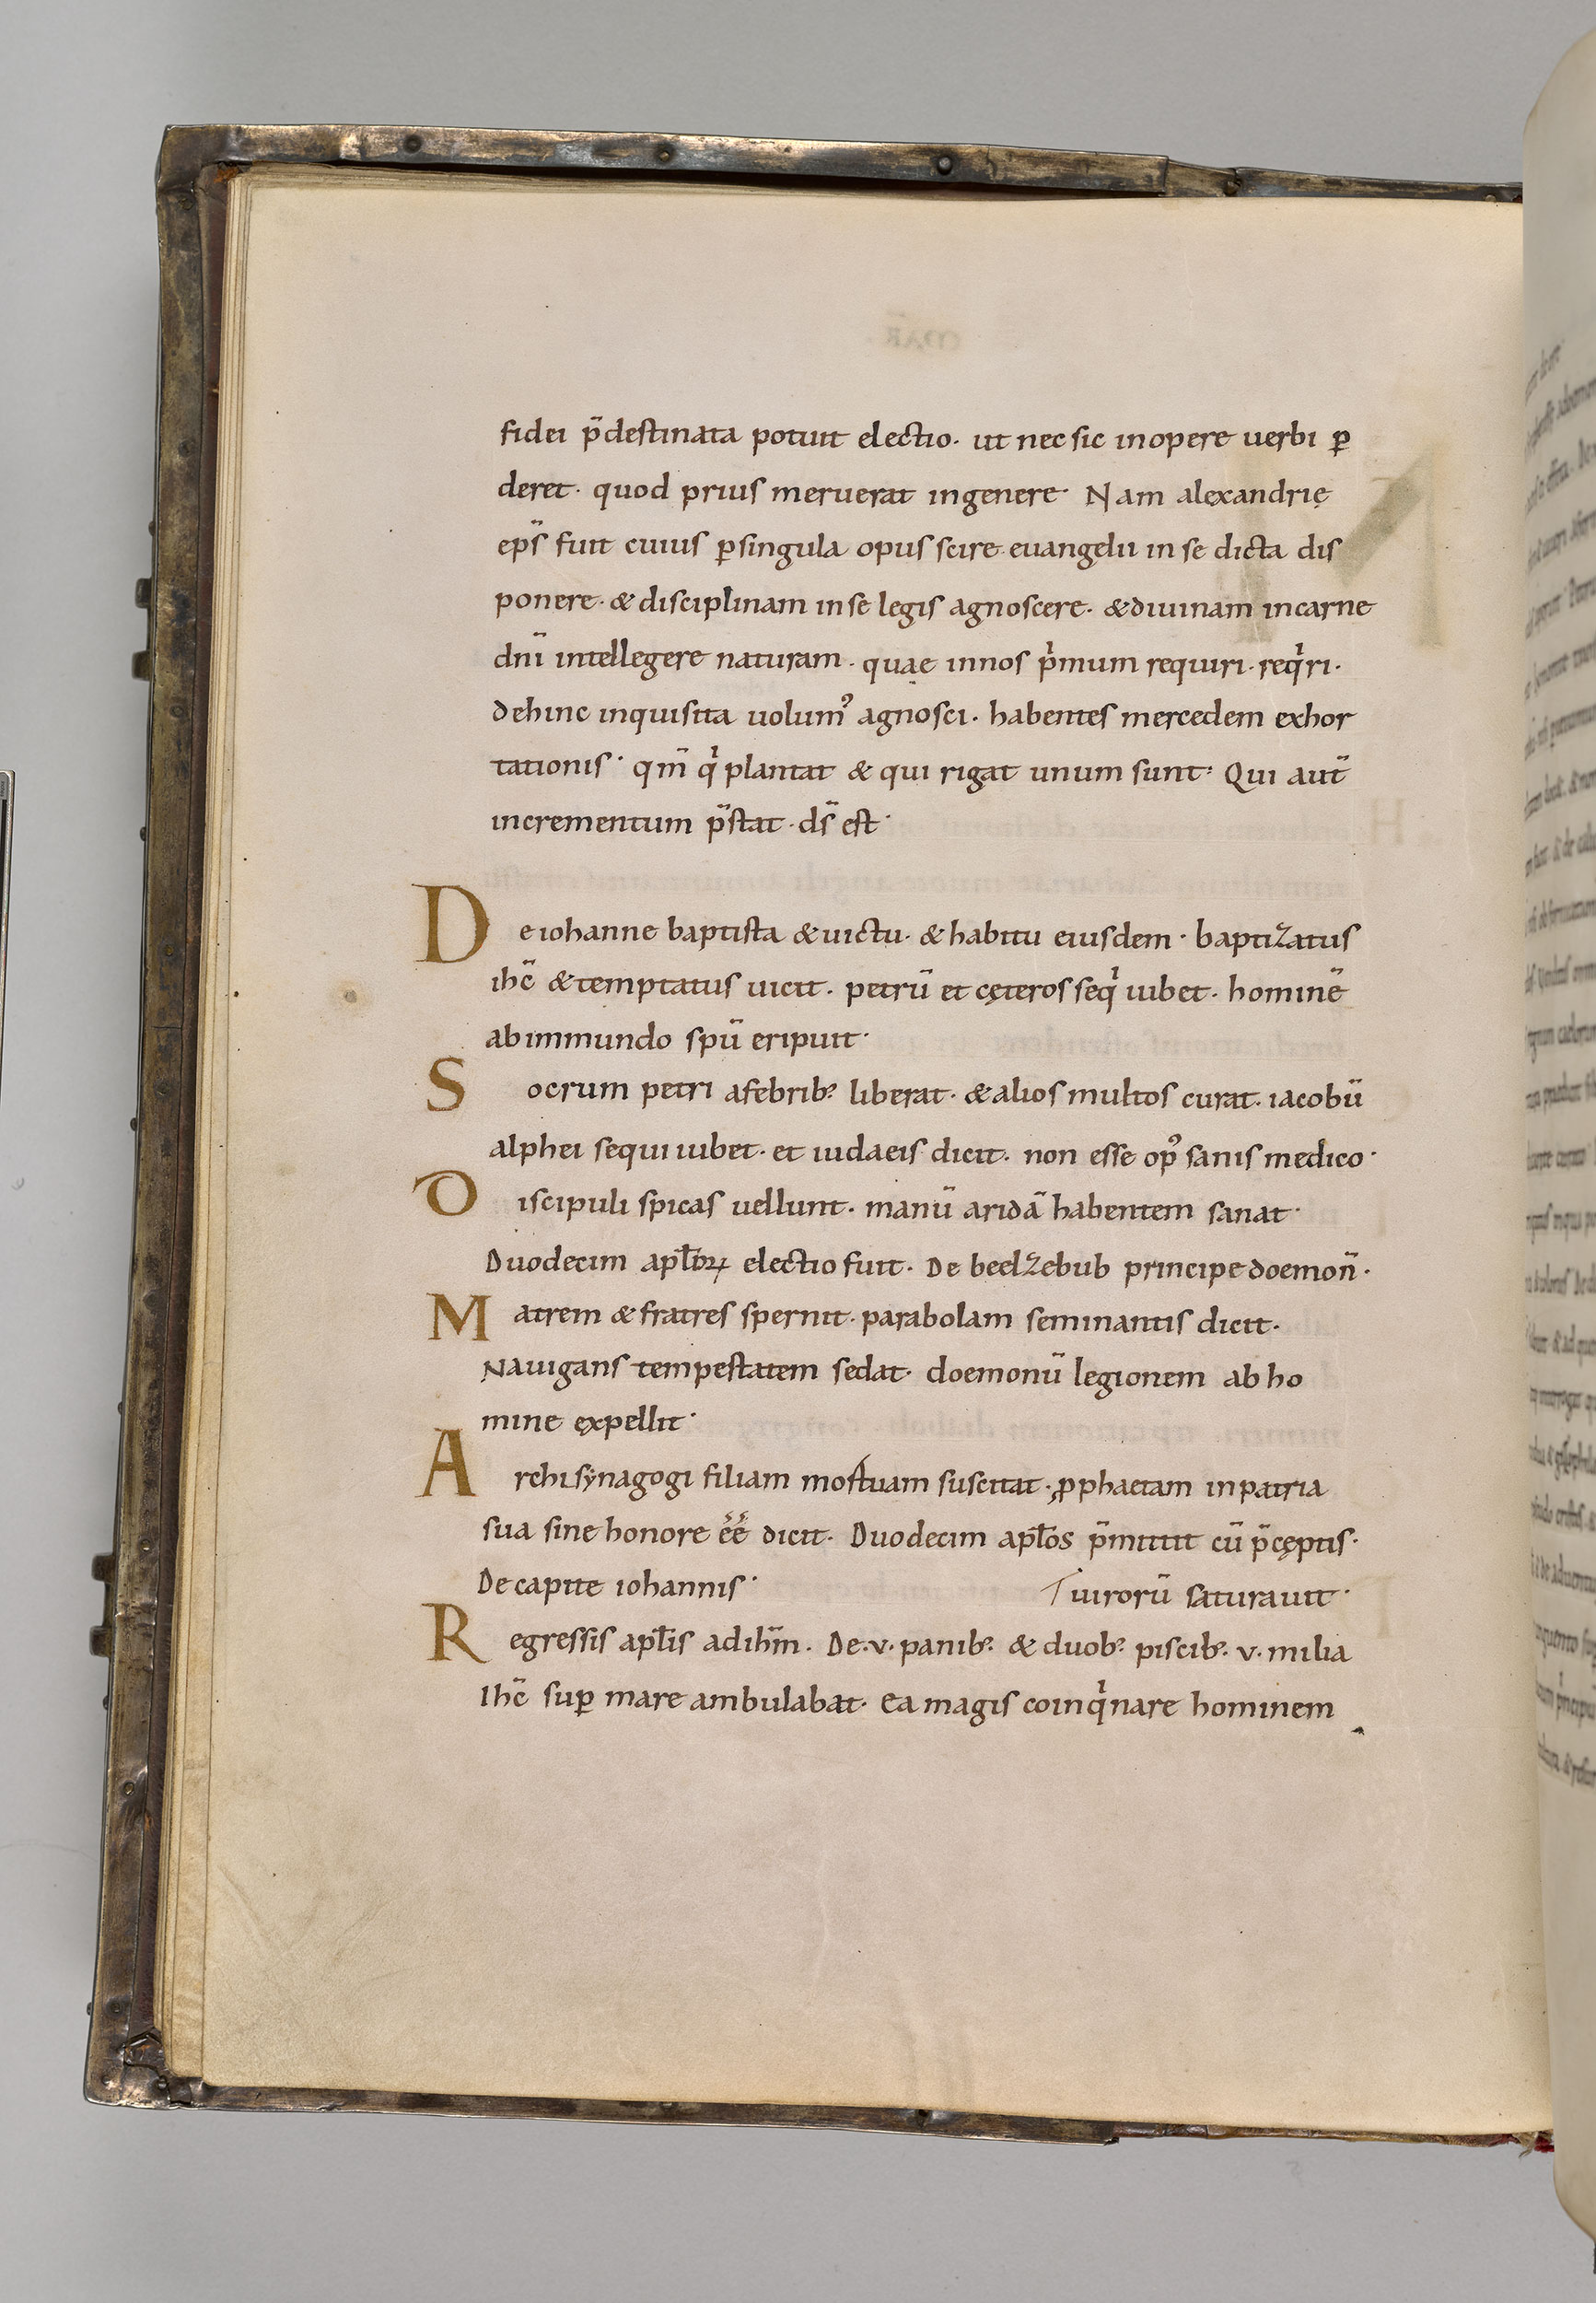 fidei p̄destinata potuit electio· ut nec sic inopere uerbi ꝑ
deret· quod prius meruerat ingenere· Nam alexandrię
ep̄s fuit cuius ꝑsingula opus scire euangelii in se dicta dis
ponere· & disciplinam inse legis agnoscere· & diuinam incarne
dn̄i intellegere naturam· quae innos pͥmum requiri· reqͥri·
dehinc inquisita uolumꝰ agnosci· habentes mercedem exhor
tationis· qm̄ qͥ plantat & qui rigat unum sunt· Qui aut̄
incrementum p̄stat· ds̄ est·
De iohanne baptista & uictu· & habitu eiusdem· baptizatus
ihc̄ & temptatus uicit· petrū et cęteros seqͥ iubet· hominē
abimmundo spū eripuit·
Socrum petri afebrib; liberat· & alios multos curat· iacobū
alphei sequi iubet· et iudaeis dicit· non esse opꝰ sanis medico·
Discipuli spicas uellunt· manū aridā habentem sanat·
Duodecim apl̄oꝝ electio fuit· De beelzebub principe doemon̄·
Matrem & fratres spernit· parabolam seminantis dicit·
Nauigans tempestatem sedat· doemonū legionem ab ho
mine expellit·
Archisynagogi filiam mortuam suscitat· ꝓphaetam inpatria
sua sine honore ēē dicit· Duodecim apl̄os p̄mittit cū p̄cęptis·
De capite iohannis· uirorū saturauit·
Regressis apl̄is adihm̄· De·v·panib; & duob; piscib; v·milia
Ihc̄ suꝑ mare ambulabat· Ea magis coinqͥnare hominem